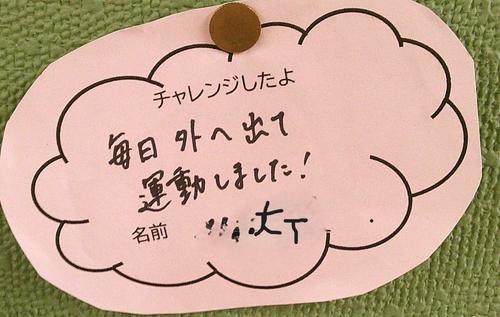 チャレンジしたよ
毎日外へ出て
運動しました!
名前